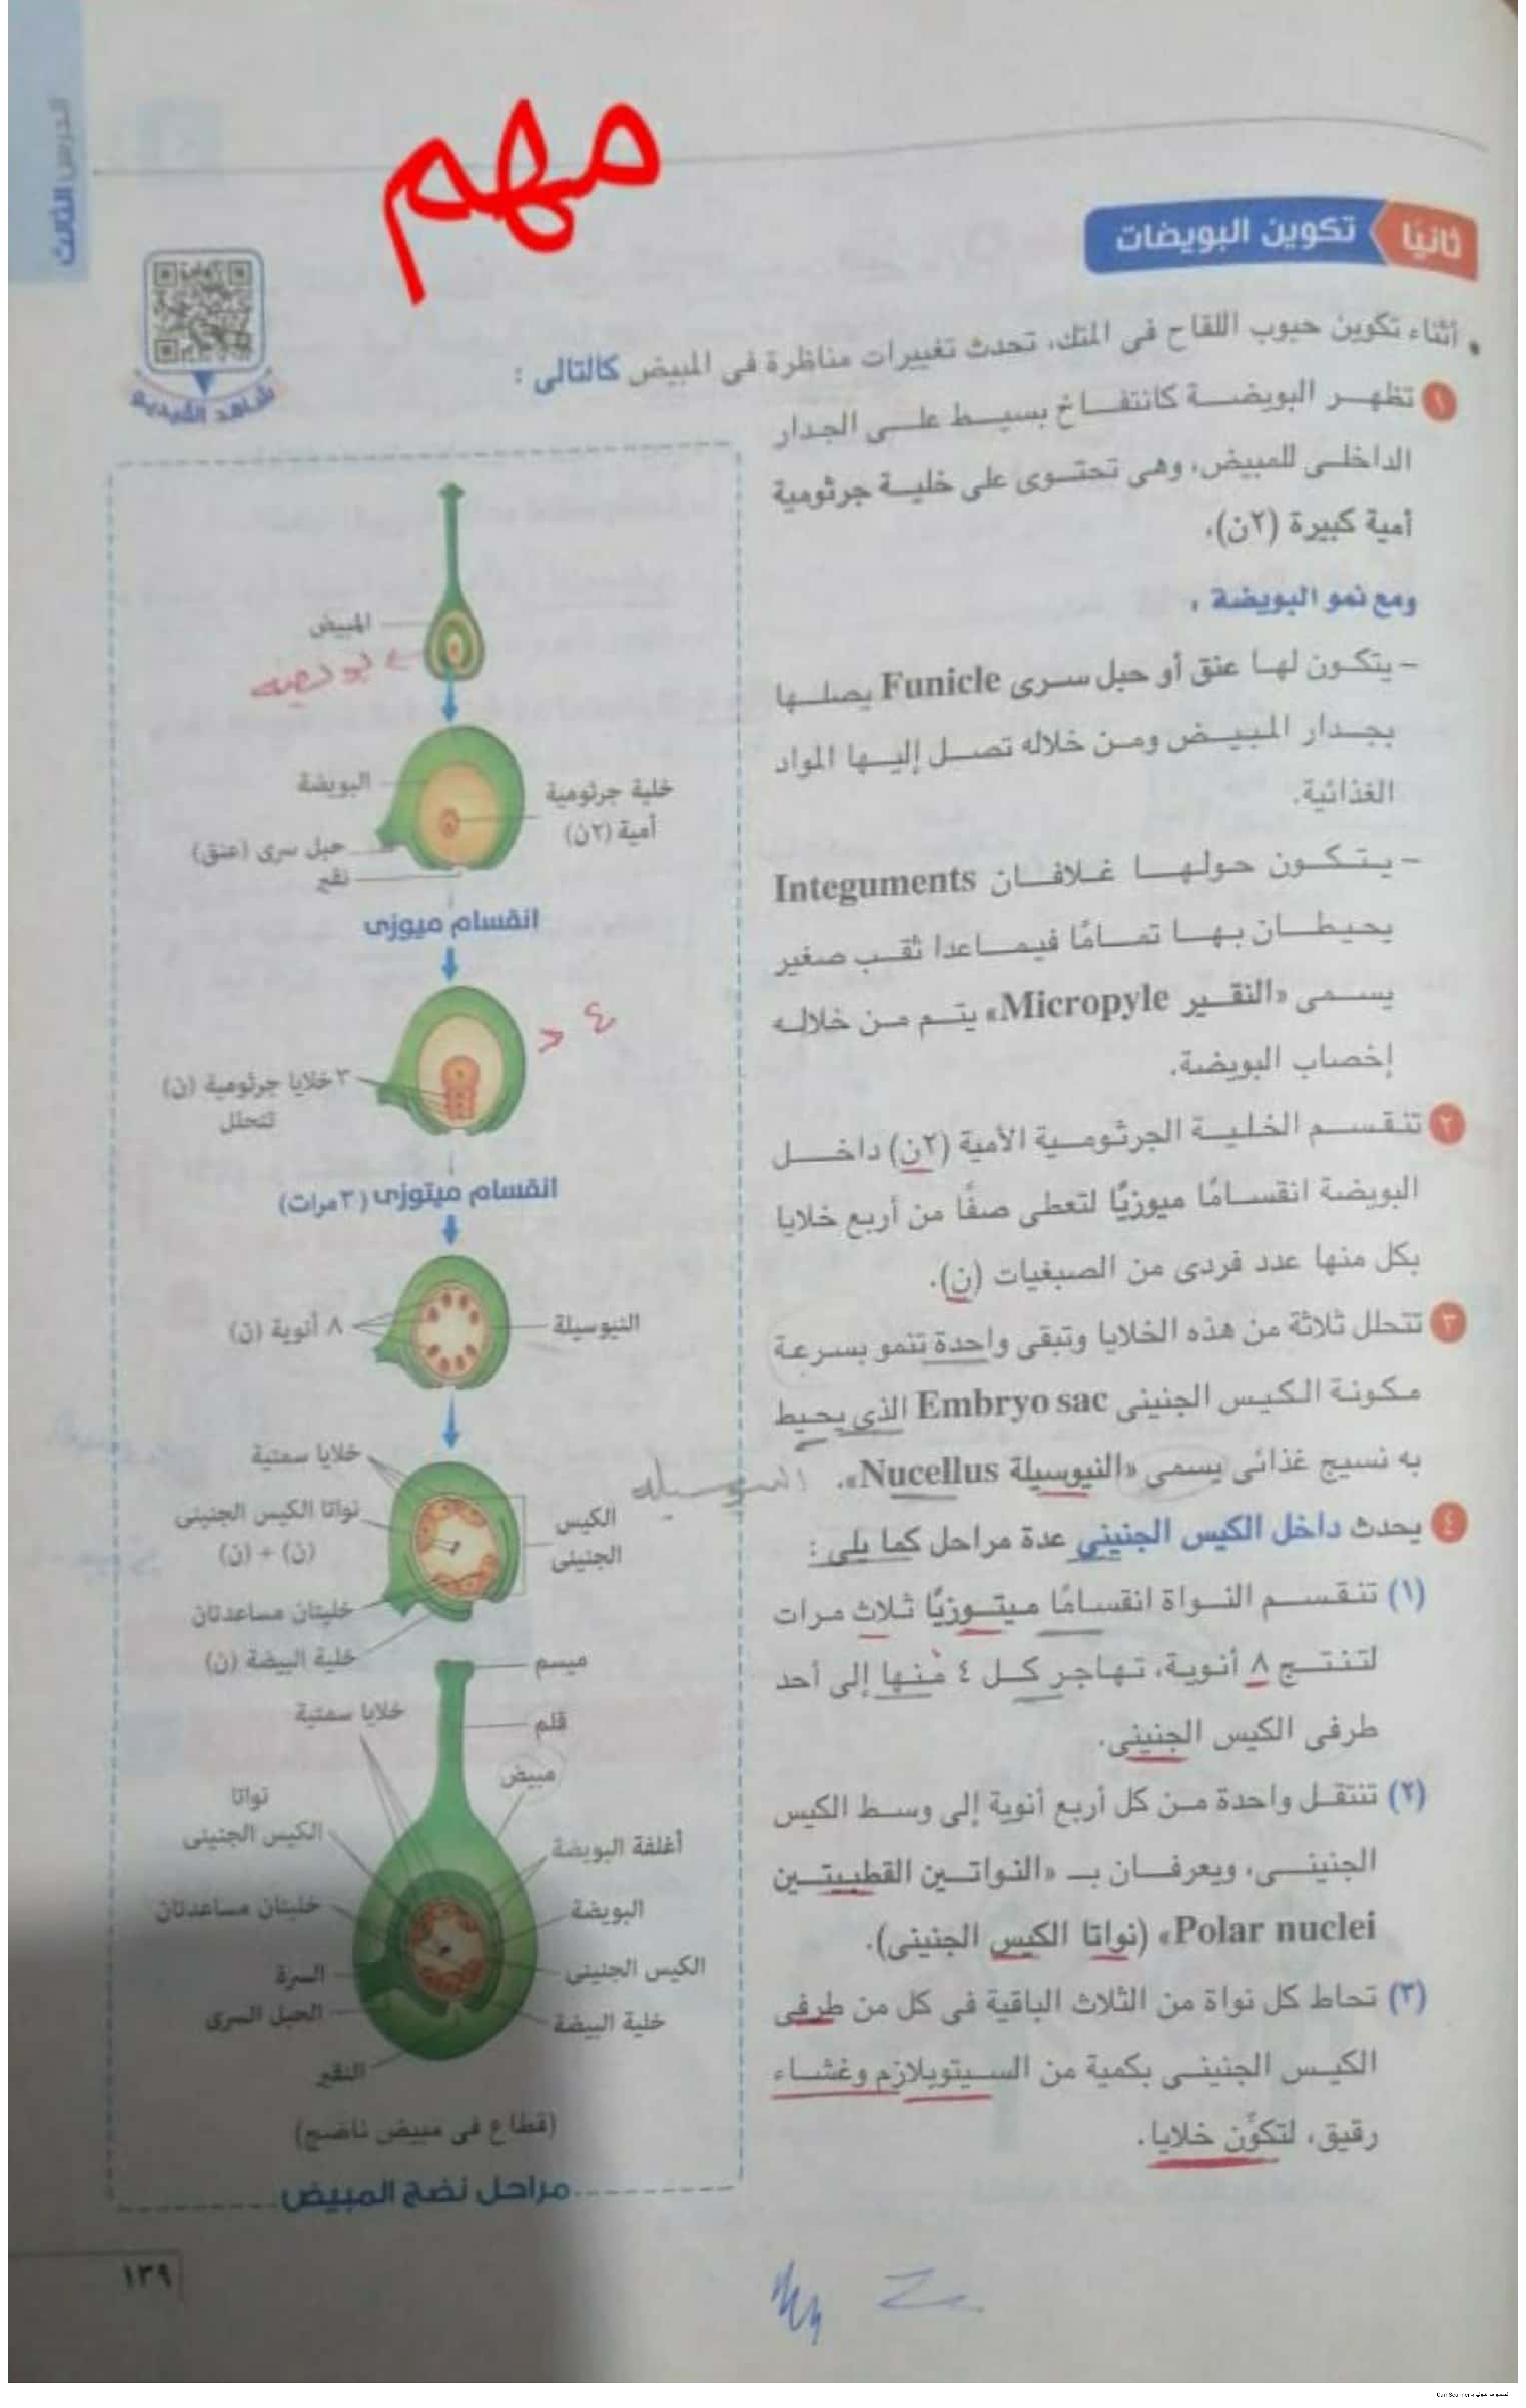 الدرس الثالث
مهم
ثانيًا تكوين البويضات
شاهد الفيديو
• أثناء تكوين حبوب اللقاح فى المتك، تحدث تغييرات مناظرة فى المبيض كالتالى :
١ تظهر البويضة كانتفاخ بسيط على الجدار
الداخلى للمبيض، وهى تحتوى على خلية جرثومية
أمية كبيرة (٢ن).
ومع نمو البويضة :
- يتكون لها عنق أو حبل سرى Funicle يصلها
بجدار المبيض ومن خلاله تصل إليها المواد
الغذائية.
- يتكون حولها غلافان Integuments
يحيطان بها تمامًا فيماعدا ثقب صغير
يسمى «النقير Micropyle» يتم من خلاله
إخصاب البويضة.
٢ تنقسم الخلية الجرثومية الأمية (٢ن) داخل
البويضة انقسامًا ميوزيًا لتعطى صفًا من أربع خلايا
بكل منها عدد فردى من الصبغيات (ن).
٣ تتحلل ثلاثة من هذه الخلايا وتبقى واحدة تنمو بسرعة
مكونة الكيس الجنينى Embryo sac الذى يحيط
به نسيج غذائى يسمى «النيوسيلة Nucellus».
النيوسيله
٤ يحدث داخل الكيس الجنينى عدة مراحل كما يلى :
(١) تنقسم النواة انقسامًا ميتوزيًا ثلاث مرات
لتنتج ٨ أنوية، تهاجر كل ٤ منها إلى أحد
طرفى الكيس الجنينى.
(٢) تنتقل واحدة من كل أربع أنوية إلى وسط الكيس
الجنينى، ويعرفان بـ «النواتين القطبيتين
Polar nuclei» (نواتا الكيس الجنينى).
(٣) تحاط كل نواة من الثلاث الباقية فى كل من طرفى
الكيس الجنينى بكمية من السيتوبلازم وغشاء
رقيق، لتكوِّن خلايا.
المبيض
بويضه
البويضة
خلية جرثومية
أمية (٢ن)
حبل سرى (عنق)
نقير
انقسام ميوزى
٤
٣ خلايا جرثومية (ن)
تتحلل
انقسام ميتوزى (٣ مرات)
٨ أنوية (ن)
النيوسيلة
خلايا سمتية
نواتا الكيس الجنينى
(ن) + (ن)
الكيس
الجنينى
خليتان مساعدتان
خلية البيضة (ن)
ميسم
خلايا سمتية
قلم
مبيض
نواتا
الكيس الجنينى
أغلفة البويضة
خليتان مساعدتان
البويضة
السرة
الكيس الجنينى
الحبل السرى
خلية البيضة
النقير
(قطاع فى مبيض ناضج)
مراحل نضج المبيض
١٣٩
الممسوحة ضوئيا بـ CamScanner